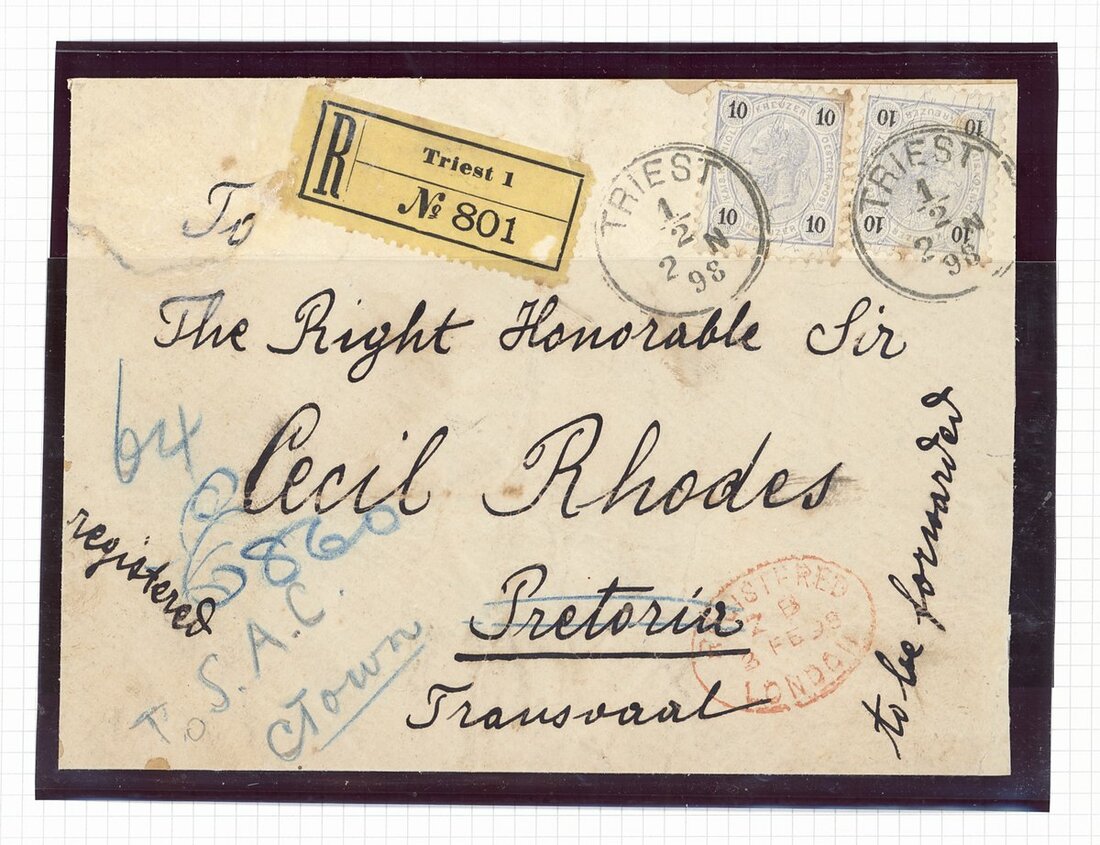 R
Triest 1
№ 801
10 KREUZER 10
10 KREUZER 10
10 KREUZER 10
10 10
TRIEST
1/2
2 N
98
TRIEST
1/2
2 N
98
To
The Right Honorable Sir
Cecil Rhodes
Pretoria
Transvaal
registered
to be forwarded
64
6860
To S.A.C.
CTown
REGISTERED
3 FE 98
LONDON